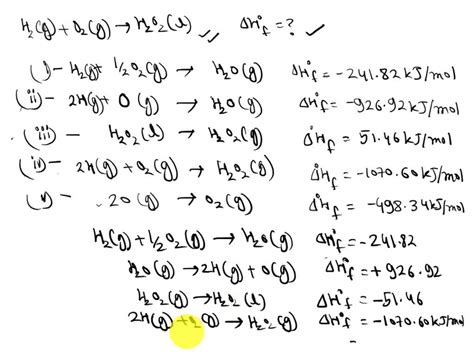 H₂(g)+O₂(g)→H₂O₂(l) ✓✓ ΔH°f = ? ✓
(i)- H₂(g)+ 1/2O₂(g) → H₂O(g) ΔH°f = -241.82 kJ/mol
(ii)- 2H(g)+ O(g) → H₂O(g) ΔH°f = -926.92 kJ/mol
(iii)- H₂O₂(l) → H₂O₂(g) ΔH°f = 51.46 kJ/mol
(iv)- 2H(g)+O₂(g) → H₂O₂(g) ΔH°f = -1070.60 kJ/mol
(v)- 2O(g) → O₂(g) ΔH°f = -498.34 kJ/mol
H₂(g)+1/2O₂(g) → H₂O(g) ΔH°f = -241.82
H₂O(g) → 2H(g)+O(g) ΔH°f = +926.92
H₂O₂(g) → H₂O₂(l) ΔH°f = -51.46
2H(g)+O₂(g) → H₂O₂(g) ΔH°f = -1070.60 kJ/mol